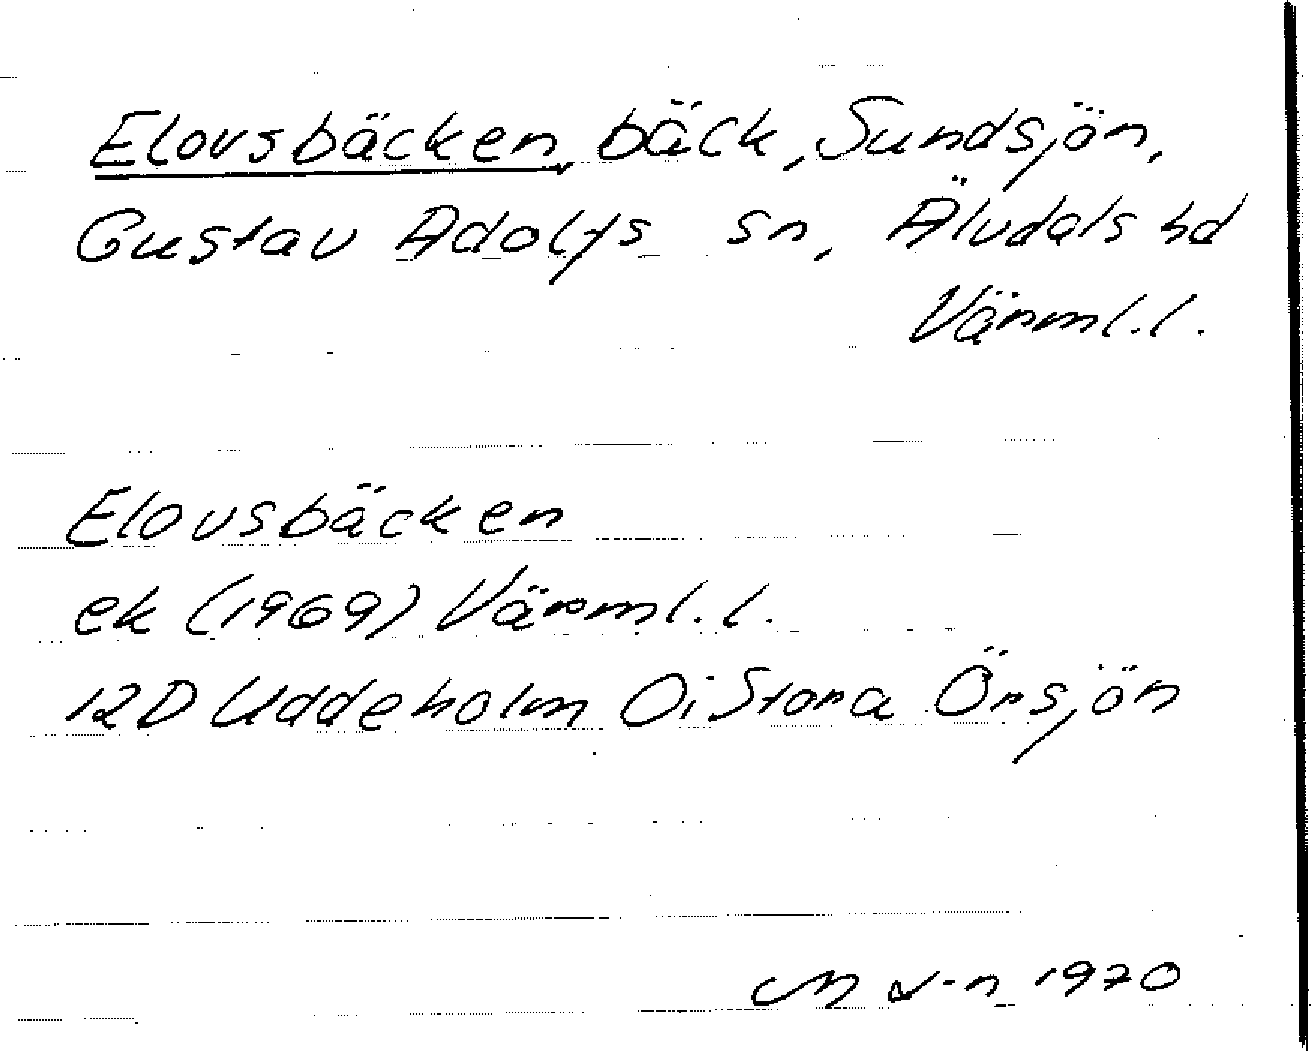 Elovsbäcken, bäck, Sundsjön,
Gustav Adolfs sn, Älvdals hd
Värml. l.
Elovsbäcken
ek (1969) Värml. l.
12D Uddeholm Oi Stora Örsjön
1970